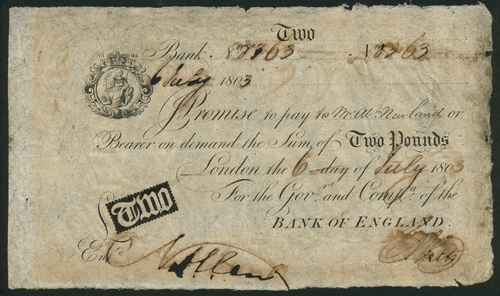 Two
Bank No 8263 18263
6 July 1803
I Promise to pay to Mr. Ab. Newland or
Bearer on demand the Sum of Two Pounds
London the 6 day of July 1803
For the Govr. and Compa. of the
BANK OF ENGLAND.
£ Two
Entd.